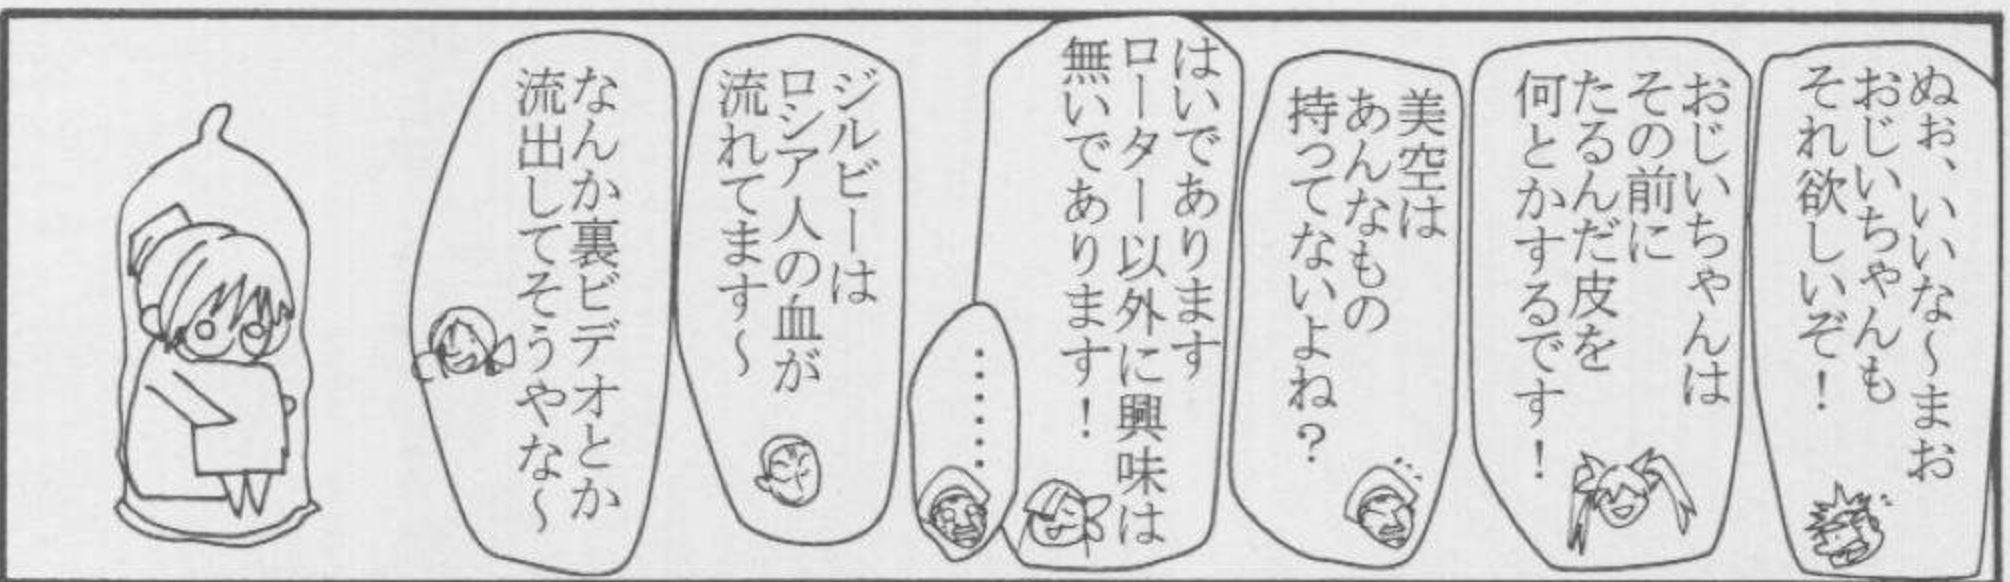 ぬぉ、いいな～まお
おじいちゃんも
それ欲しいぞ！
おじいちゃんは
その前に
たるんだ皮を
何とかするです！
美空は
あんなもの
持ってないよね？
はいであります
ローター以外に興味は
無いであります！
・・・・・・
ジルビーは
ロシア人の血が
流れてます～
なんか裏ビデオとか
流出してそうやな～